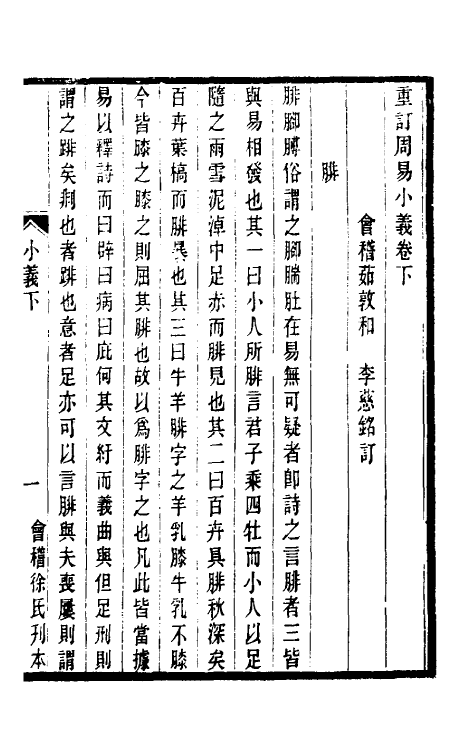 重訂周易小義卷下
會稽茹敦和　李慈銘訂
腓
腓腳膊俗謂之腳腨肚在易無可疑者卽詩之言腓者三皆
與易相發也其一曰小人所腓言君子乘四牡而小人以足
隨之雨雪泥淖中足亦而腓見也其二曰百卉具腓秋深矣
百卉葉槁而腓㬥也其三曰牛羊腓字之羊乳膝牛乳不膝
今皆膝之膝之則屈其腓也故以爲腓字之也凡此皆當據
易以釋詩而曰辟曰病曰庇何其文紆而義曲與但足刑則
謂之跸矣剕也者跸也意者足亦可以言腓與夫喪屨則謂
小義下
一
會稽徐氏刊本